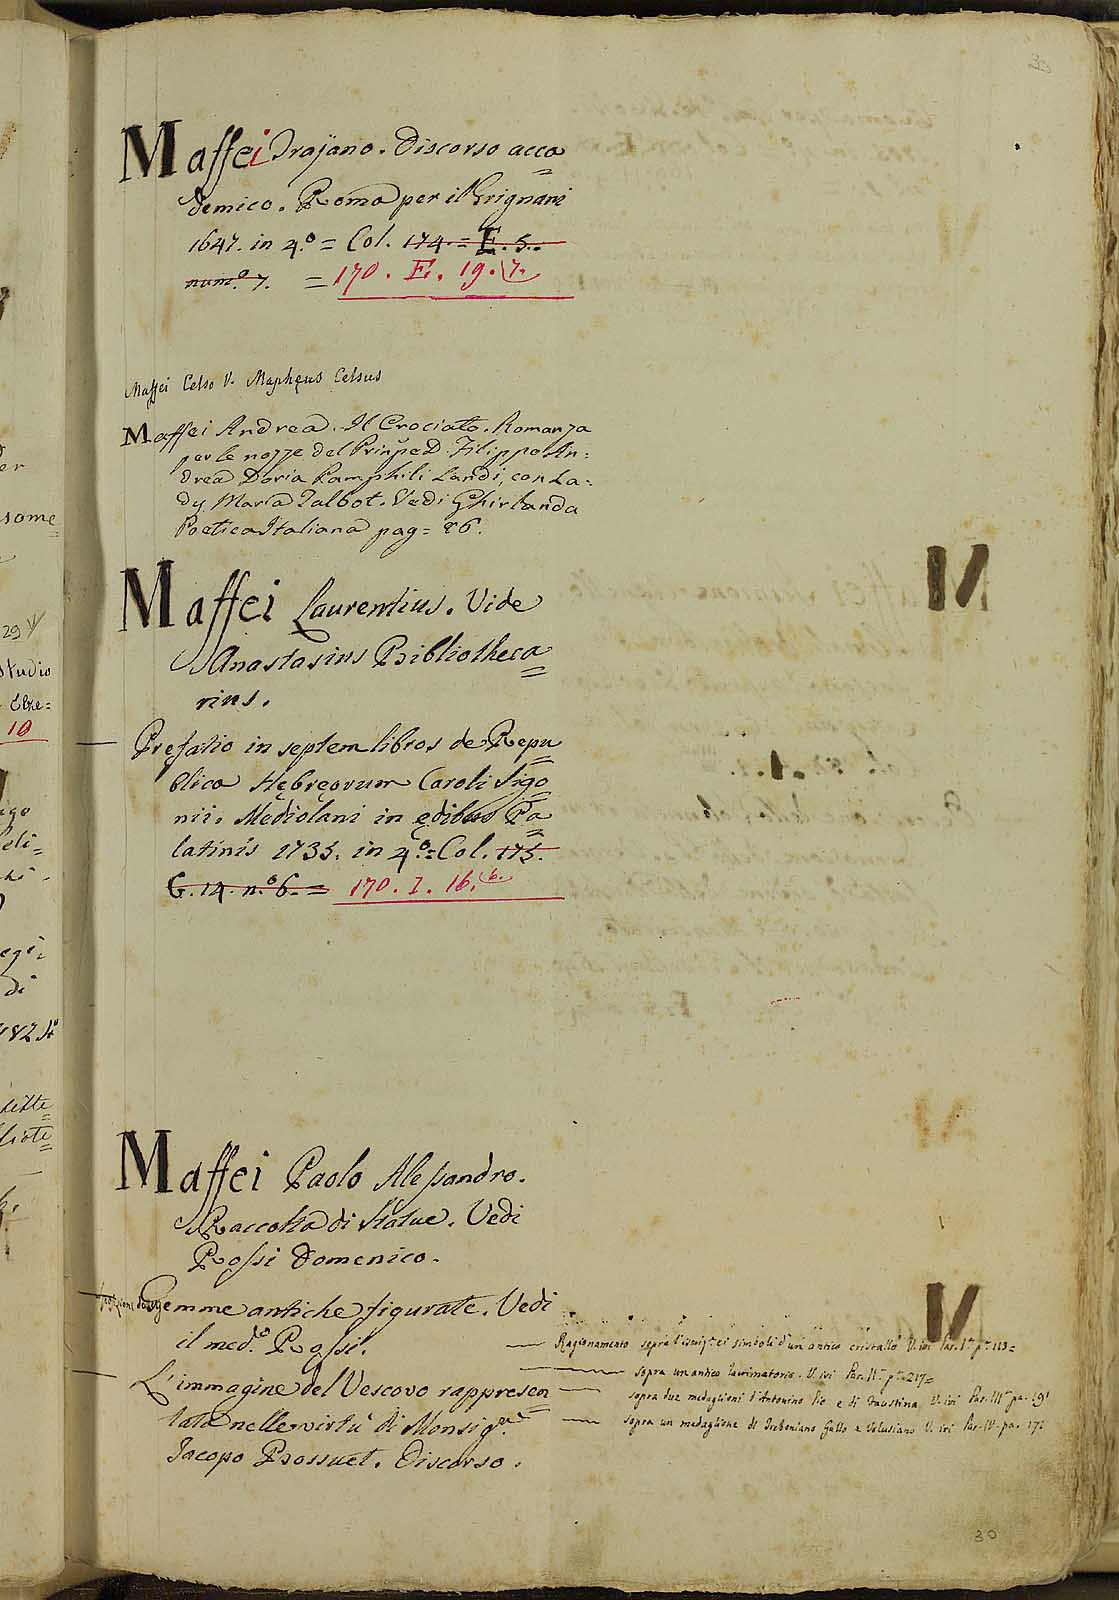 Maffei Trajano. Discorso acca=
demico. Roma per il Grignani
1647. in 4.º = Col. 174. = E. 5.
num.º 7. = 170. E. 19. 7.
Maffei Celso V. Mapheus Celsus
Maffei Andrea. Il Crociato. Romanza
per le nozze del Prinpe D. Filippo An:
drea Doria Pamphili Landi, con La:
dy Maria Talbot. Vedi Ghirlanda
Poetica Italiana pag= 86.
Maffei Laurentius. Vide
Anastasius Bibliotheca=
rius.
— Pręfatio in septem libros de Repu=
blica Hębręorum Caroli Sigo=
nii. Mediolani in ędibus Pa=
latinis 1733. in 4.º = Col. 173.
G. 14. n.º 6. = 170. I. 16. 6.
Maffei Paolo Alessandro.
Raccolta di Statue. Vedi
Rossi Domenico.
— Gemme antiche figurate. Vedi
il med.º Rossi.
— L'immagine del Vescovo rappresen=
tata nelle virtù di Monsig.re
Jacopo Bossuet. Discorso.
— Ragionamento sopra simboli d'un antico cristallo V. ivi Par. I.
— sopra un antico lacrimatorio. V. ivi Par. II. p. 217=
— sopra due medaglioni d'Antonino Pio e di Faustina. V. ivi Par. III pa. 191
— sopra un medaglione di Treboniano Gallo e Volusiano V. ivi Par. IV. pa. 171
30